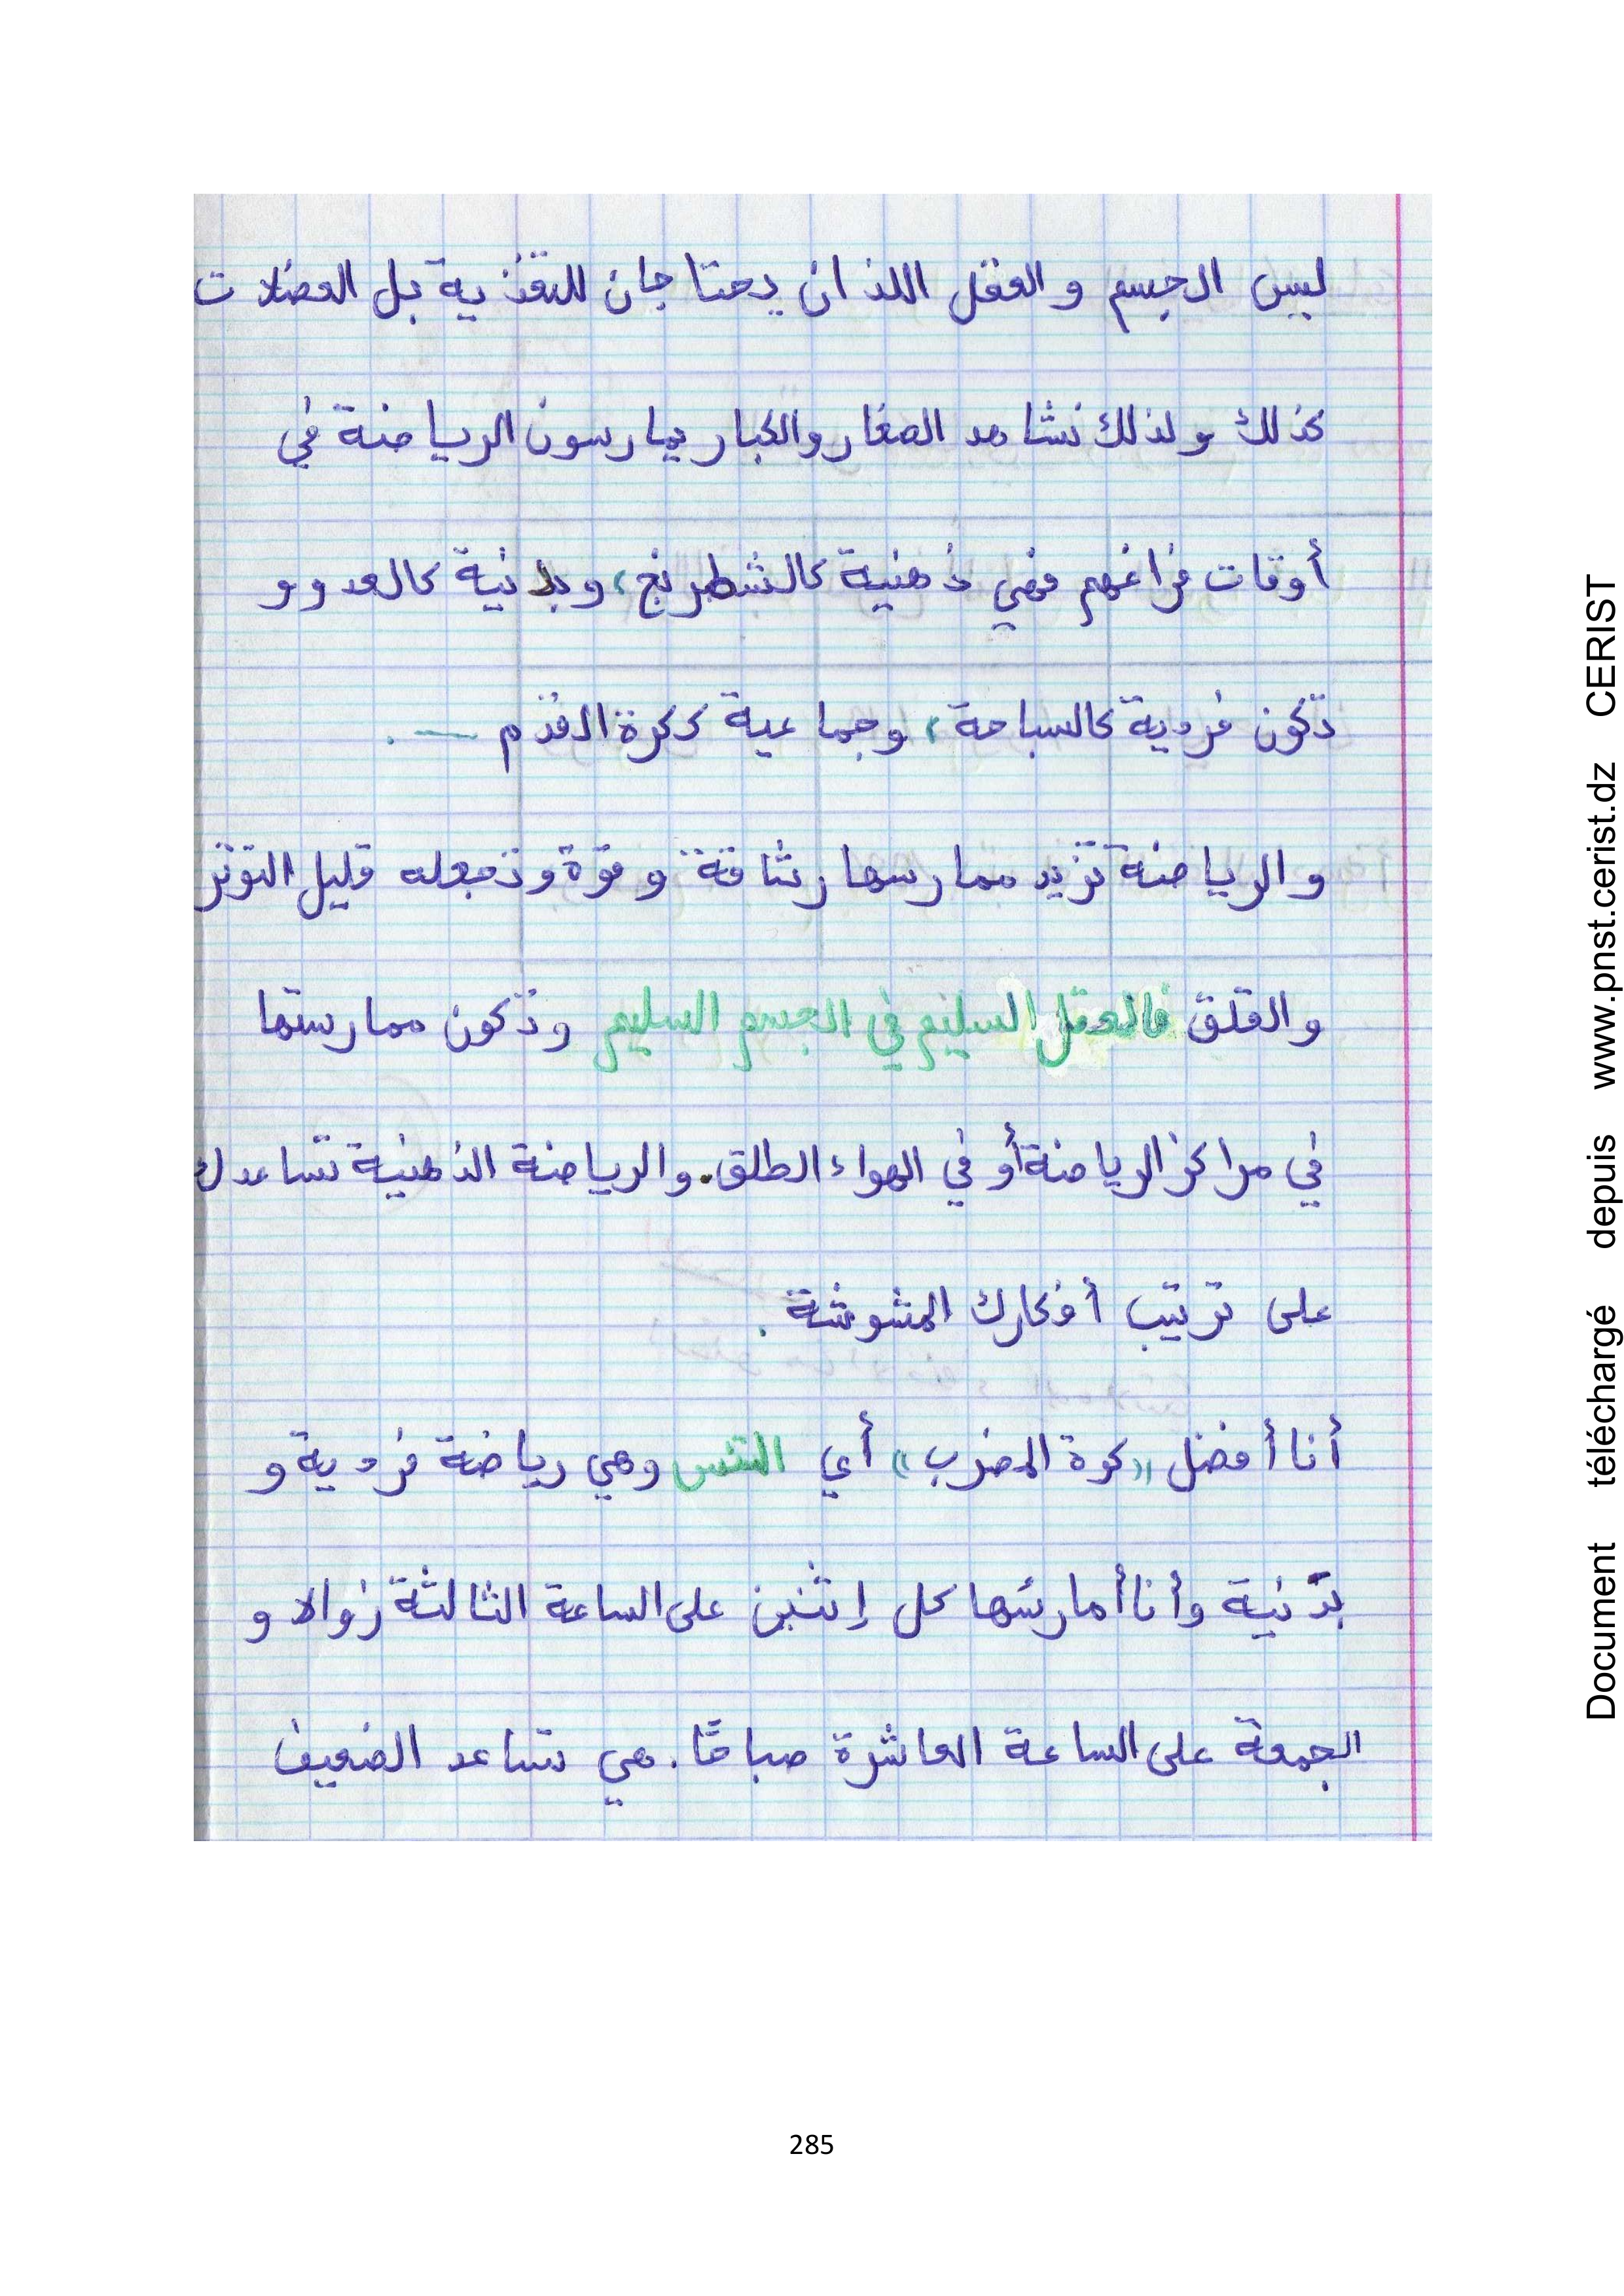 ليس الجسم و العقل اللذان يحتاجان للتغذية بل العضلات
كذلك ولذلك نشاهد الصغار والكبار يمارسون الرياضة في
أوقات فراغهم فهي ذهنية كالشطرنج، وبدنية كالعدو و
تكون فردية كالسباحة، وجماعية ككرة القدم ـــ .
و الرياضة تزيد ممارسها رشاقة و قوة و تجعله قليل التوتر
و القلق فالعقل السليم في الجسم السليم وتكون ممارستها
في مراكز الرياضة أو في الهواء الطلق. والرياضة الذهنية تساعدك
على ترتيب أفكارك المشوشة .
أنا أفضل «كرة المضرب» أي التنس وهي رياضة فردية و
بدنية وأنا أمارسها كل إثنين على الساعة الثالثة زوالا و
الجمعة على الساعة العاشرة صباحًا. هي تساعد الضعيف
285
Document téléchargé depuis www.pnst.cerist.dz CERIST